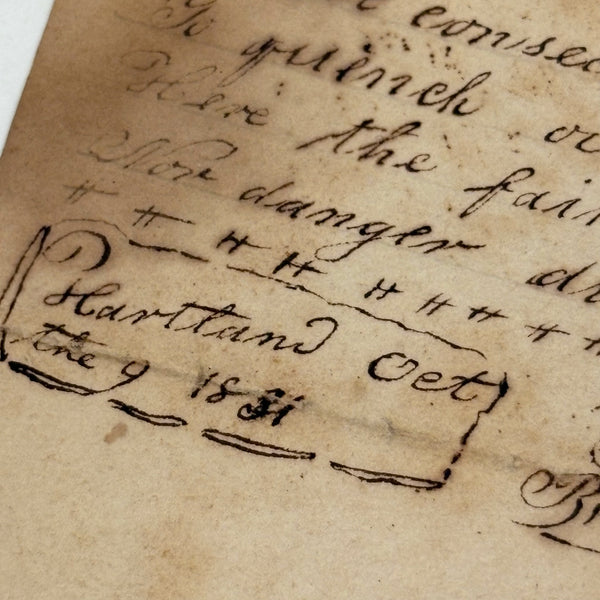 consec
To quench
Here the fair
Nor danger
# # # # # # # # #
Hartland Oct
the 9 18